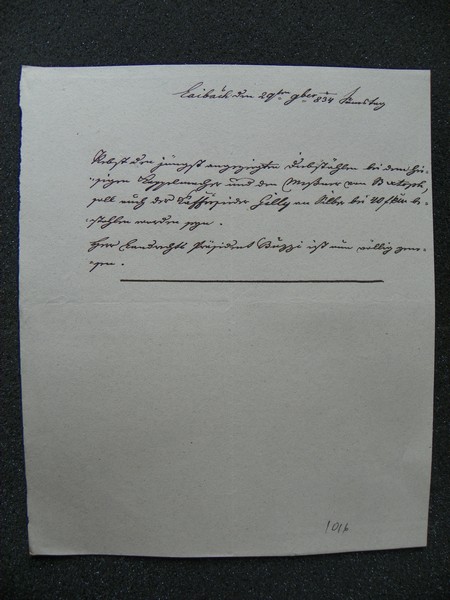 Laibach den 29ten 9ber 834 Samstag
Nebst den jüngst angezeigten Diebstählen bei dem hie-
sigen und dem Messner von
soll auch der Kaffeesieder an Silber bei 40 f be-
stohlen worden seyn.
Herr Landrechts Präsident Buzzi ist nun völlig gene-
sen.
1016